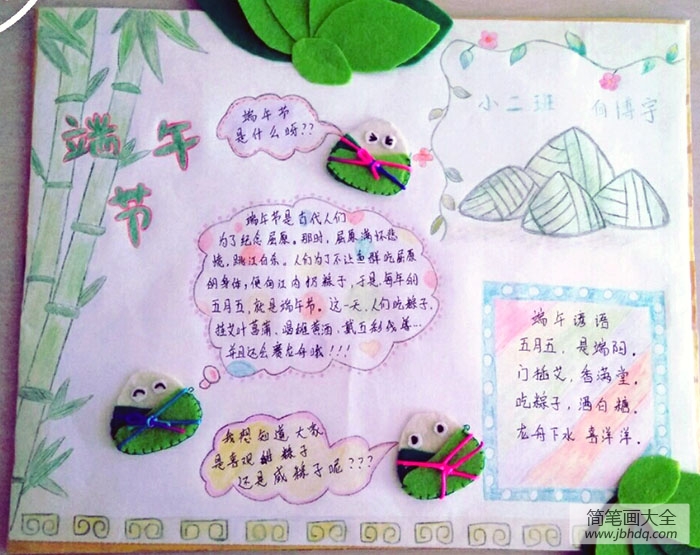 端午
节
端午节
是什么呀??
小二班
端午节是古代人们
为了纪念屈原。那时,屈原满怀悲
愤,跳江自杀。人们为了不让鱼群吃屈原
的身体,便向江内扔粽子,于是,每年的
五月五,就是端午节。这一天,人们吃粽子,
挂艾叶菖蒲,喝雄黄酒,戴五彩线等…
并且还会赛龙舟哦!!!
我想知道大家
是喜欢甜粽子
还是咸粽子呢???
端午谚语
五月五,是端阳。
门插艾,香满堂。
吃粽子,洒白糖。
龙舟下水 喜洋洋。
简笔画大全
www.jbhdq.com